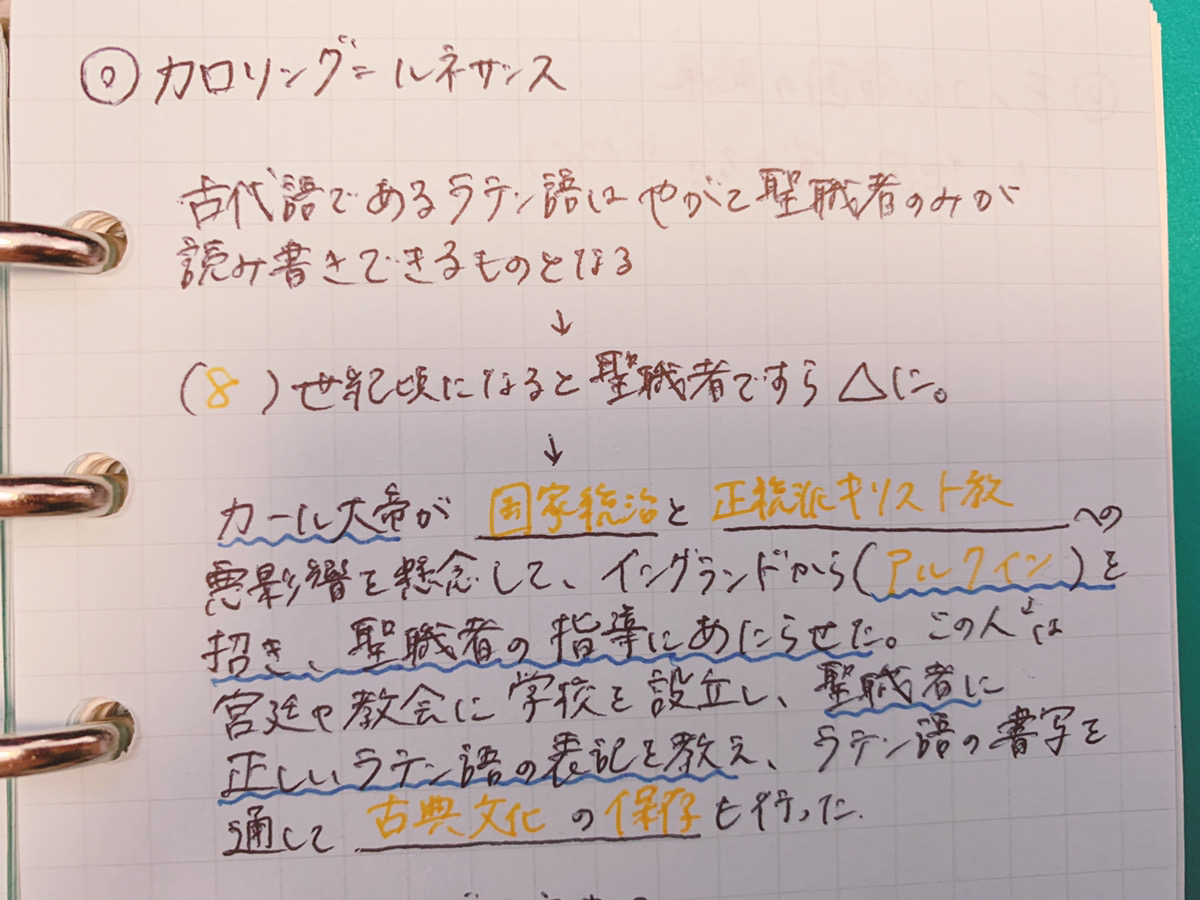 ◎カロリング=ルネサンス
古代語であるラテン語はやがて聖職者のみが
読み書きできるものとなる
↓
(8)世紀頃になると聖職者ですら△に。
↓
カール大帝が 国家統治と 正統派キリスト教 への
悪影響を懸念して、イングランドから(アルクイン)を
招き、聖職者の指導にあたらせた。この人は
宮廷や教会に学校を設立し、聖職者に
正しいラテン語の表記を教え、ラテン語の書写を
通して 古典文化の保存も行った.